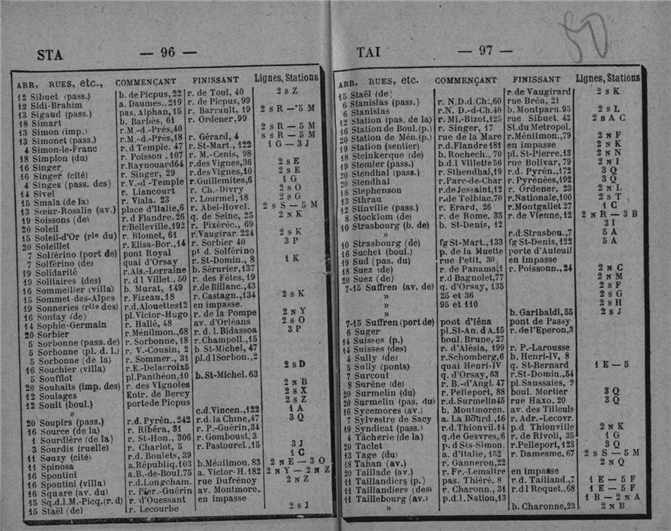 STA — 96 —
ARR. RUES, etc., COMMENÇANT FINISSANT Lignes, Stations
12 Sibuet (pass.) b. de Picpus, 22 r. de Toul, 40 2 s Z
12 Sidi-Brahim a. Daumes..219 r. de Picpus, 99
13 Sigaud (pass.) pas. Alphan, 15 r. Barrault, 19 2 s R — 5 M
18 Simart b. Barbès, 61 r. Ordener, 99
13 Simon (imp.) r. M.-d-Prés, 40 2 s R — 5 M
13 Simonet (pass.) r. M.-d-Prés, 18 r. Gérard, 4 s s R — 5 M
4 Simon-le-Franc r. d Temple, 47 r. St-Mart., 122 1 G — 3 J
18 Simplon (du) r. Poisson, 107 r. M.-Cenis, 98
16 Singer r. Raynouard 64 r. des Vignes, 36 2 s E
16 Singer (cité) r. Singer, 29 r. des Vignes, 10 2 s E
4 Singes (pass. des) r. V.-d-Temple r. Guillemites, 6 1 G
14 Sivel r. Liancourt r. Ch.-Divry 2 s O
15 Smala (de la) r. Viala, 23 r. Lourmel, 18 2 s G
13 Sœur-Rosalie (av.) place d'Italie, 6 r. Abel-Hovel. 2 s S — 5 M
19 Soissons (de) r. d Flandre, 26 q. de Seine, 25 2 N K
20 Soleil r. Belleville, 192 r. Pixéréc., 69
15 Soleil-d'Or (rle du) r. Blomet, 61 r. Vaugirar. 224 2 s K
20 Soleillet r. Elisa-Bor., 14 r. Sorbier 40 3 P
7 Solférino (port de) pont Royal pt d. Solférino
7 Solférino (de) quai d'Orsay r. St-Domin., 8 1 K
19 Solidarité r. Als-Lorraine b. Sérurier, 137
19 Solitaires (des) r. d l Villet, 50 r. des Fêtes, 19
16 Sommeiller (villa) b. Murat, 149 r. de Billanc., 43
15 Sommet-des-Alpes r. Fizeau, 18 r. Castagn., 134 2 s K
19 Sonneries (rle des) r. d. Alouettes 12 en impasse
16 Sontay (de) pl. Victor-Hugo r. de la Pompe 2 N Y
14 Sophie-Germain r. Hallé, 48 av. d'Orléans 2 s O
20 Sorbier r. Ménilmon., 68 r. d l. Bidassoa 3 P
5 Sorbonne (pass. de) r. Sorbonne, 18 r. Champoll., 15
5 Sorbonne (pl. d. l.) r. V.-Cousin, 2 b. St-Michel, 47
5 Sorbonne (de la) r. Sommer., 31 pl. d l Sorbon., 2
16 Souchier (villa) r. E.-Delacroix 5 2 s D
5 Soufflot pl. Panthéon, 10 b. St-Michel. 63
20 Souhaits (imp. des) r. des Vignoles 2 N B
12 Soulages Entr. de Bercy 2 s X
12 Soult (boul.) porte de Picpus 2 s Z
» c. d. Vincen., 122 1 A
20 Souplrs (pass.) r. d. Pyrén., 242 r. d la Chine, 47 3 Q
16 Source (de la) r. Ribéra, 31 r. P.-Guérin, 34
1 Sourdière (de la) r. St-Hon., 306 r. Gomboust, 3
3 Sourdis (ruelle) r. Charlot, 5 r. Pastourel., 15 3 J
11 Souzy (cité) r. d. Boulets, 39 1 C
11 Spinosa a. Républiq. 103 b. Ménilmon. 83 2 N E — 3 O
16 Spontini a. B.-de-Boul. 75 a. Victor-H. 182 2 N Y — 2 N Z
16 Spontini (villa) r. d. Longcham. rue Dufrénoy 2 N Z
16 Square (av. du) r. Pier.-Guérin av. Montmore.
15 Sq. d. l. M.-Picq. (r. d) r. d'Ouessant en impasse
15 Staël (de) r. Lecourbe 2 s J
TAI — 97 —
50
ARR. RUES, etc. COMMENÇANT FINISSANT Lignes, Stations
15 Staël (de) r. de Vaugirard 2 s K
6 Stanislas (pass.) r. N.D.d.Ch.: 60 rue Bréa, 21
6 Stanislas r. N. D.-d.Ch. 40 b. Montparn. 95 2 s L
12 Station (pas. de la) r. Mi.-Bizot, 125 rue Sibuet. 42 2 s A C
16 Station de Boul. (p.) r. Singer, 17 St. du Metropol.
20 Station de Mén. (p.) rue de la Mare r. Ménilmon., 79 2 N F
19 Station (sentier) r. d. Flandre 181 en impasse 2 N K
18 Steinkerque (de) b. Rochech., 70 pl. St-Pierre, 13 2 N N
19 Stemler (pass.) b. d l Villette 56 rue Bolivar, 79 2 N I
20 Stendhal (pass.) r. Sthendhal, 19 r. d. Pyrén., 172 3 Q
20 Stendhal r. Pare-de-Char r. Pyrénées, 192 3 Q
18 Stephenson r. de Jessaint, 12 r. Ordener, 23 2 N L
13 Sthrau r. de Tolbiac, 70 r. Nationale, 100 2 s T
12 Stinville (pass.) r. Erard, 26 r. Montgallet 27 1 C
8 Stockholm (de) r. de Rome, 35 r. de Vienne, 12 2 N R — 3 B
10 Strasbourg (b. de) b. St-Denis, 12 3 I
» r. d. Strasbou., 7 5 A
10 Strasbourg (de) fg St-Mart., 133 fg St-Denis, 122 5 A
16 Suchet (boul.) p. de la Muette porte d'Auteuil
19 Sud (pas. du) rue Petit, 39 en impasse
18 Suez (de) r. de Panama, 1 r. Poissonn., 24 2 N C
20 Suez (de) r. d Bagnolet, 77 2 N M
7-15 Suffren (av. de) q. d'Orsay, 135 2 s F
» 25 et 36 2 s G
» 95 et 110 2 s H
» b. Garibaldi, 55 2 s J
7-15 Suffren (port de) pont d'Iéna pont de Passy
6 Suger pl. St-An.-d.A. 15 r. de l'Eperon, 3
14 Suisses (p.) boul. Brune, 27
14 Suisses (des) r. d'Alésia, 199 r. P.-Larousse
4 Sully (de) r. Schomberg, 6 b. Henri-IV, 8
5 Sully (ponts) quai Henri-IV q. St-Bernard 1 E — 5
7 Surcouf q. d'Orsay, 63 r. St-Domin., 54
8 Surène (de) r. B.-d'Angl. 47 pl. Saussaies, 2
20 Surmelin (du) r. Pelleport, 88 boul. Mortier 3 Q
20 Surmelin (pas. du) r. d. Surmelin 45 rue Haxo, 20 3 Q
16 Sycomores (av.) b. Montmoren. av. des Tilleuls
7 Sylvestre de Sacy a. La B'durd., 16 r. Adr.-Lecovr.
19 Syndicat (pass.) r. d. Thionvil. 14 p. d Thionville 2 N K
4 Tâcherie (de la) q. de Gesvres, 6 r. de Rivoli, 35 1 G
20 Taclet p. d Sts-Simon. r. Pelleport, 123 3 Q
13 Tage (du) a. d'Italie, 152 r. Damesme, 67 2 s S — 5 M
17 Tahan (av.) r. Ganneron, 22 2 N Q
20 Taillade (av.) r. Fr.-Lemaître en impasse
11 Taillandiers (p.) pas. Thiéré, 8 r. d. Tailland., 7 1 E — 5 F
11 Taillandiers (des) r. Charonn., 31 r. d l Roquet., 68 1 E — 5 F
11 Taillebourg (av.) p. d. l. Nation, 13 1 B — 2 N A
» b. Charonne, 23 2 N B